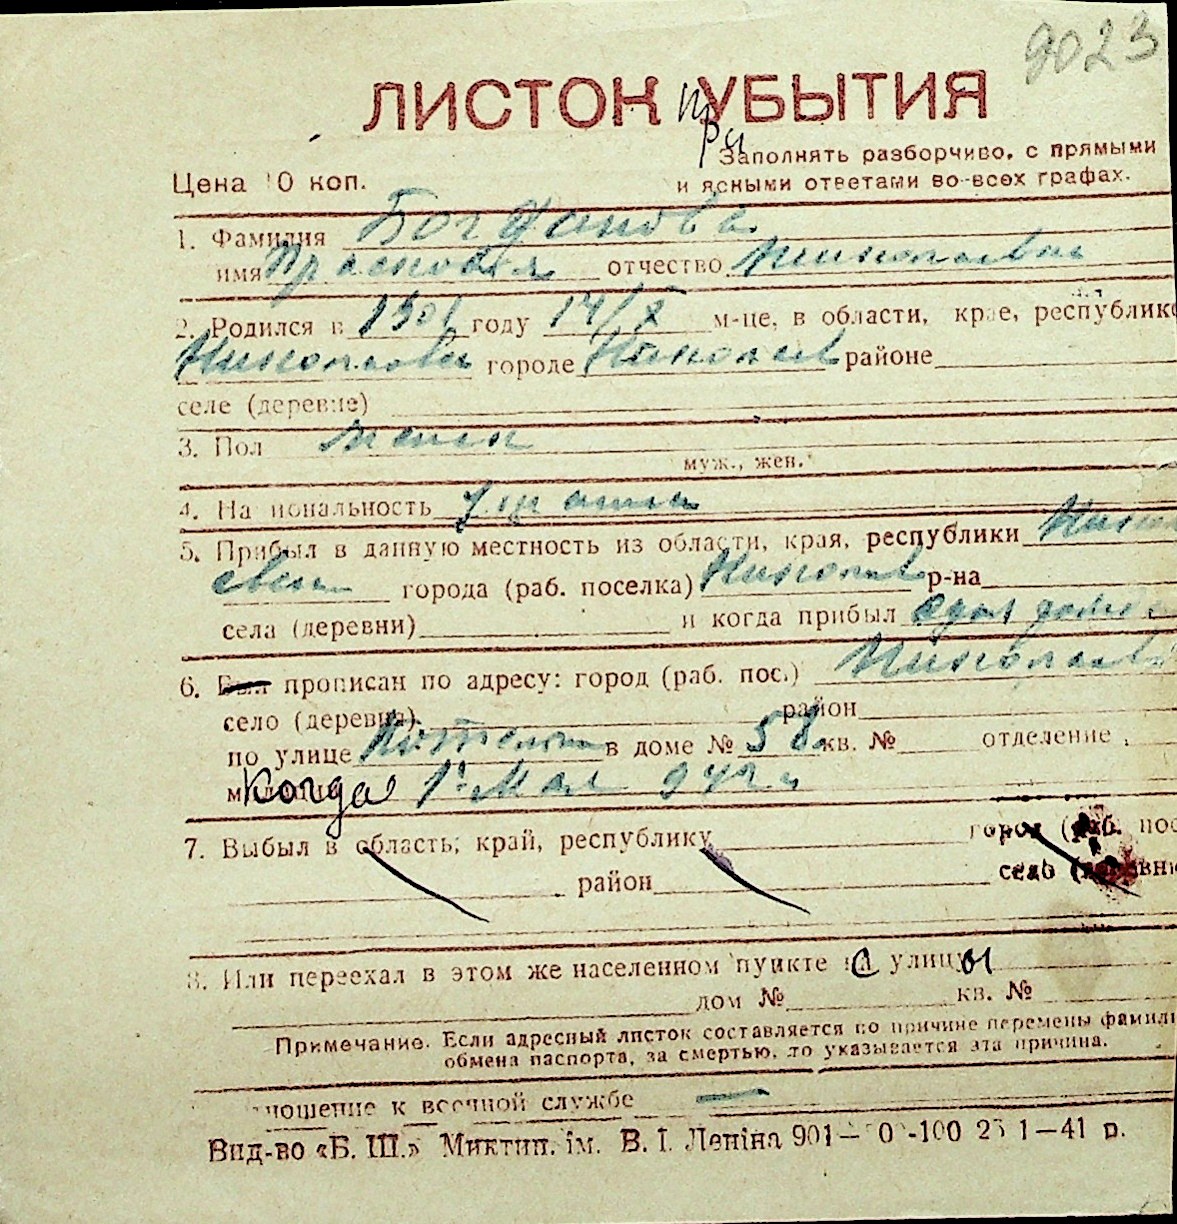 9023
ЛИСТОК УБЫТИЯ
при
Заполнять разборчиво, с прямыми
Цена 10 коп.
и ясными ответами во всех графах.
1. Фамилия Богданова
имя Прасковья отчество Николаевна
2. Родился в 1901 году 14/X м-це, в области, крае, республике
Николаевск городе Николаев районе
селе (деревне)
3. Пол женск
муж., жен.
4. Национальность
5. Прибыл в данную местность из области, края, республики Никола
евск города (раб. поселка) Николаев р-на
села (деревни) и когда прибыл
6. Был прописан по адресу: город (раб. пос.) Николаев
село (деревня) район
по улице в доме № 58 кв. № отделение
когда 1 Мая 942 г
7. Выбыл в область, край, республику город (раб. пос
район село (деревню
8. Или переехал в этом же населенном пункте с улицы
дом № кв. №
Примечание. Если адресный листок составляется по причине перемены фамили
обмена паспорта, за смертью, то указывается эта причина.
ношение к военной службе —
Вид-во «Б. Ш.» Миктип. ім. В. І. Леніна 901— 0 -100 25 1—41 р.